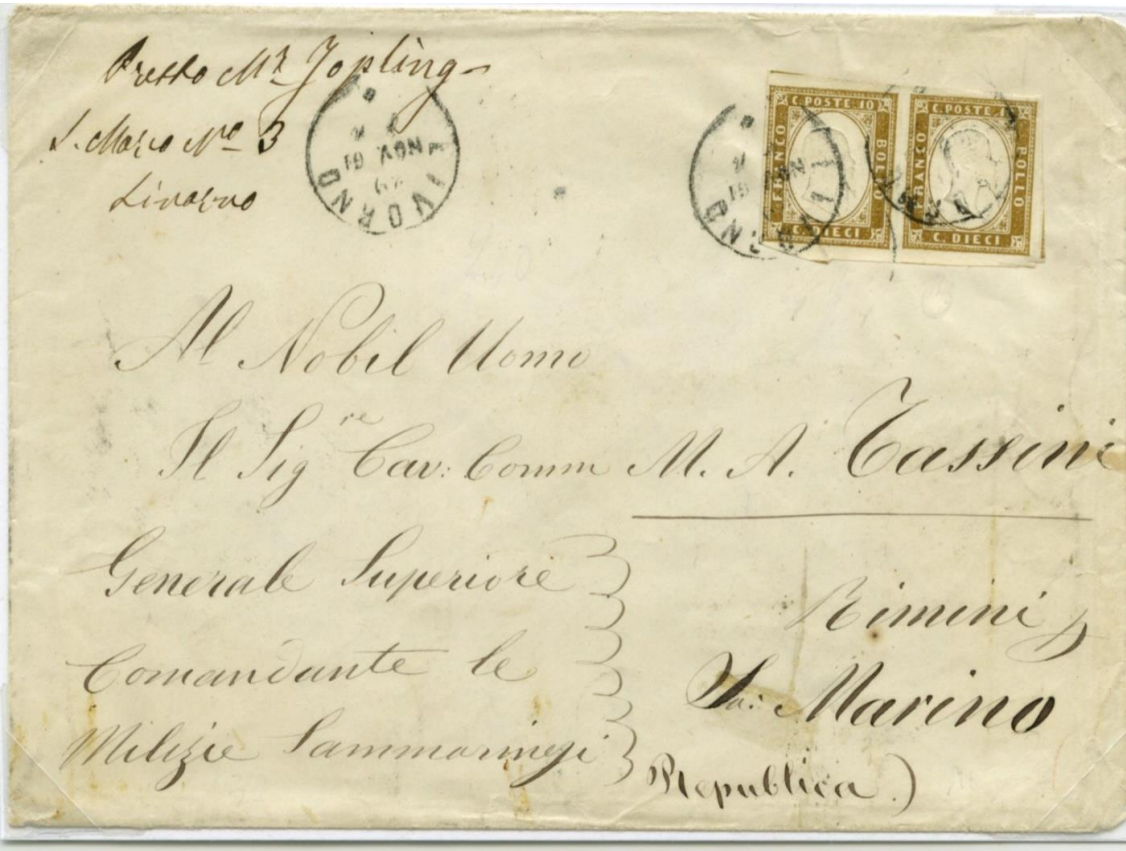 Presso Mr. Jopling
S. Marco No 3
Livorno
LIVORNO
NOV 61
LIVORNO
NOV 61
C. POSTE. 10
FRANCO BOLLO
C. DIECI
C. POSTE. 10
FRANCO BOLLO
C. DIECI
Al Nobil Uomo
Il Sigre Cav: Comm M. A. Tassini
Generale Superiore
Comandante le
Milizie Sammarinesi
Rimini p
Sa: Marino
Republica)